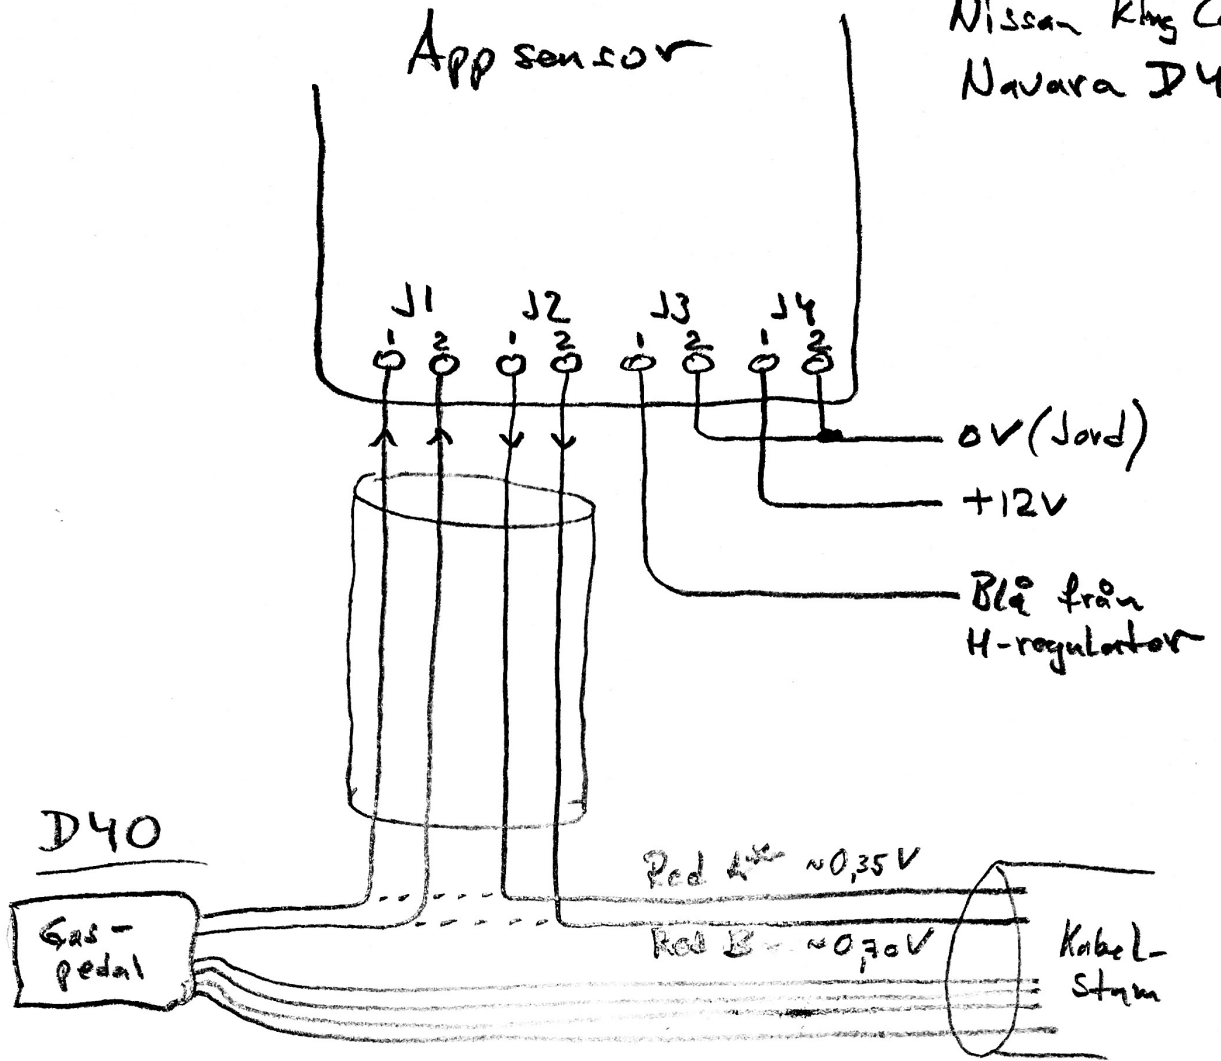 App sensor
Nissan King C
Navara D4
J1 J2 J3 J4
1 2 1 2 1 2 1 2
0V (Jord)
+12V
Blå från
H-regulator
D40
Red ~0,35V
Gas-
pedal
Red B - ~0,70V
Kabel-
stam